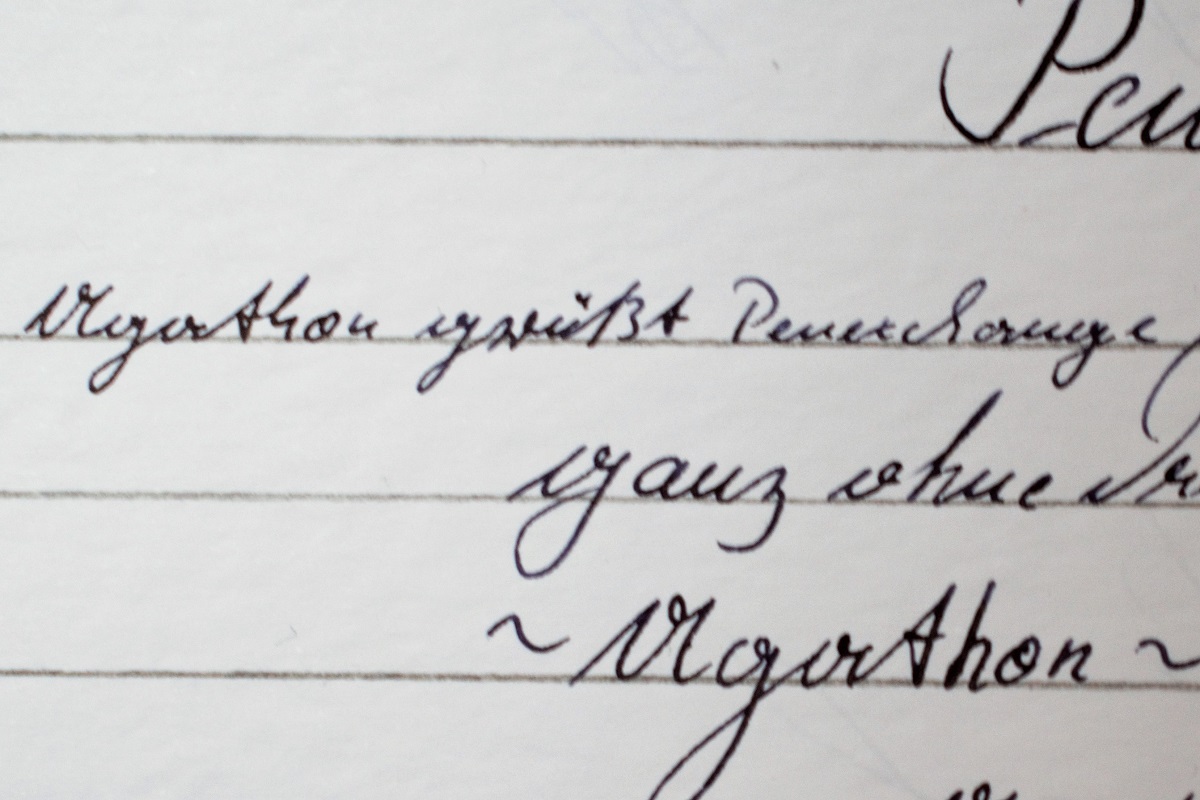 Pen
Agathon grüßt Penexchange
ganz ohne
~ Agathon ~